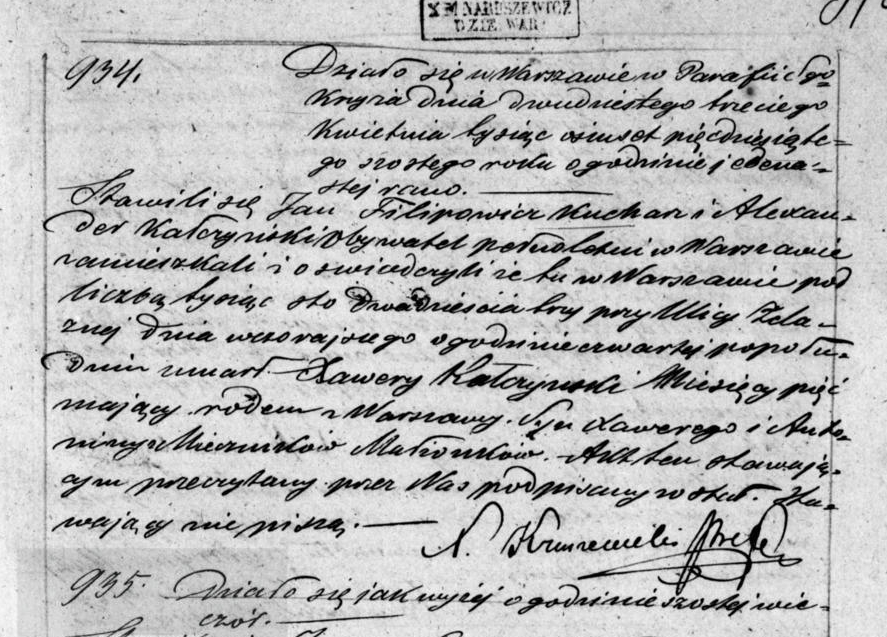 X M NARUSZEWICZ
DZIE. WAR.
934.
Działo się w Warszawie w Parafii Sgo
Krzyża dnia dwudziestego trzeciego
Kwietnia tysiąc osiemset pięćdziesiąte=
go szostego roku o godzinie jedena=
stej rano.
Stawili się Jan Filipowicz Kucharz i Alexan=
der Kałczyński Obywatel pełnoletni w Warszawie
zamieszkali i oswiadczyli iż tu w Warszawie pod
liczbą tysiąc sto dwadzieścia trzy przy Ulicy Żela=
znej dnia wczorajszego o godzinie czwartej popołu=
dniu umarł Xawery Kałczyński Miesięcy pięć
mający rodem z Warszawy. Syn Xawerego i Anto=
niny Małżonków. Akt ten stawają=
cym przeczytany przez Nas podpisany został. Sta=
wający nie piszą.
935. Działo się jak wyżej o godzinie szostej wie=
czór.